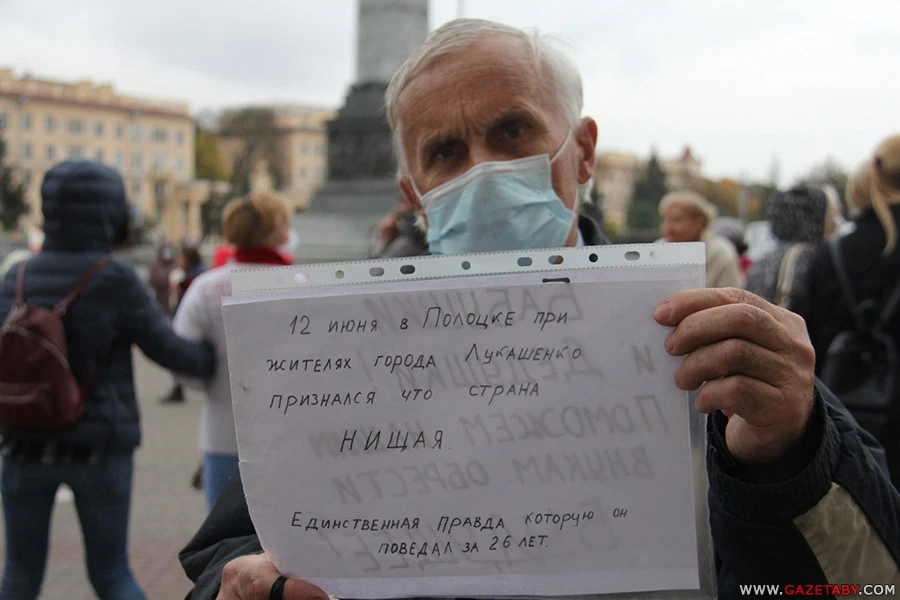 12 июня в Полоцке при
жителях города Лукашенко
признался что страна
НИЩАЯ.
Единственная правда которую он
поведал за 26 лет.
Бабушки
и Дедушки!
Поможем
внукам обрести
WWW.GAZETABY.COM